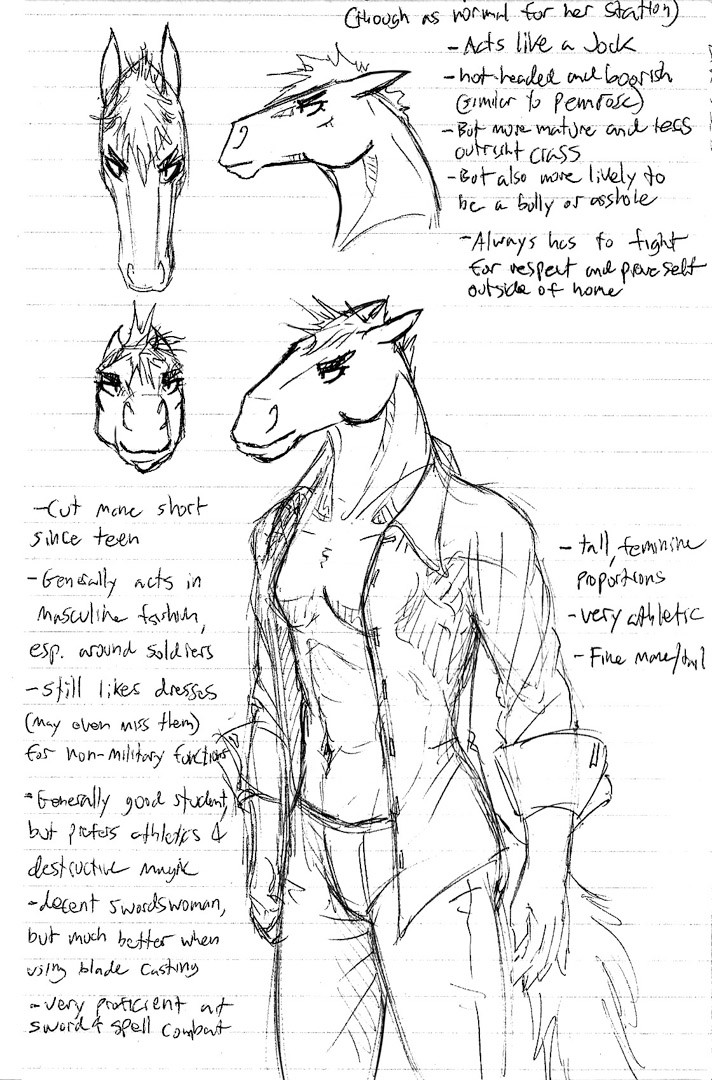 (though as normal for her station)
- Acts like a Jock
- hot-headed and boorish
(similar to Pemrose)
- But more mature and less
outright crass
- But also more lively to
be a bully or asshole
- Always has to fight
for respect and prove self
outside of home
- Cut mane short
since teen
- Generally acts in
masculine fashion,
esp. around soldiers
- still likes dresses
(may even miss them)
for non-military functions
- Generally good student,
but prefers athletics &
destructive magik
- decent swordswoman,
but much better when
using blade casting
- very proficient at
sword & spell combat
- tall, feminine
proportions
- very athletic
- Fine mane/tail